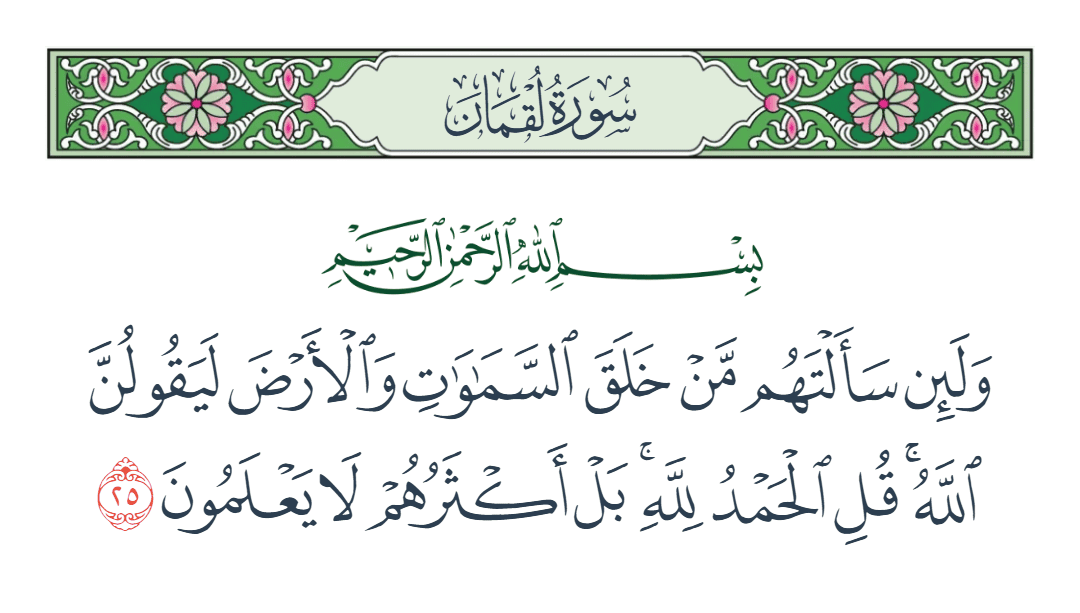 سُورَةُ لُقْمَان
بِسْمِ ٱللَّهِ ٱلرَّحْمَٰنِ ٱلرَّحِيمِ
وَلَئِن سَأَلْتَهُم مَّنْ خَلَقَ ٱلسَّمَٰوَٰتِ وَٱلْأَرْضَ لَيَقُولُنَّ
ٱللَّهُۚ قُلِ ٱلْحَمْدُ لِلَّهِۚ بَلْ أَكْثَرُهُمْ لَا يَعْلَمُونَ ٢٥